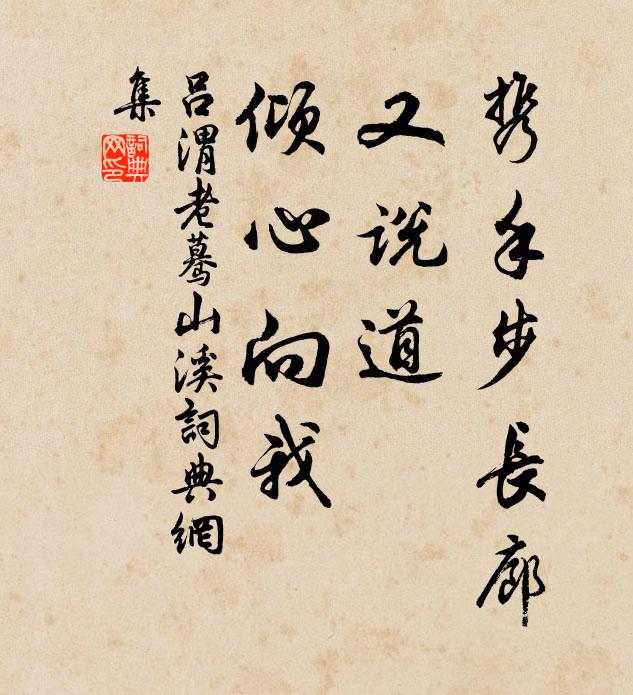 携手步长廊
又说道
倾心向我
吕渭老蓦山溪詞典網
集
詞典网印